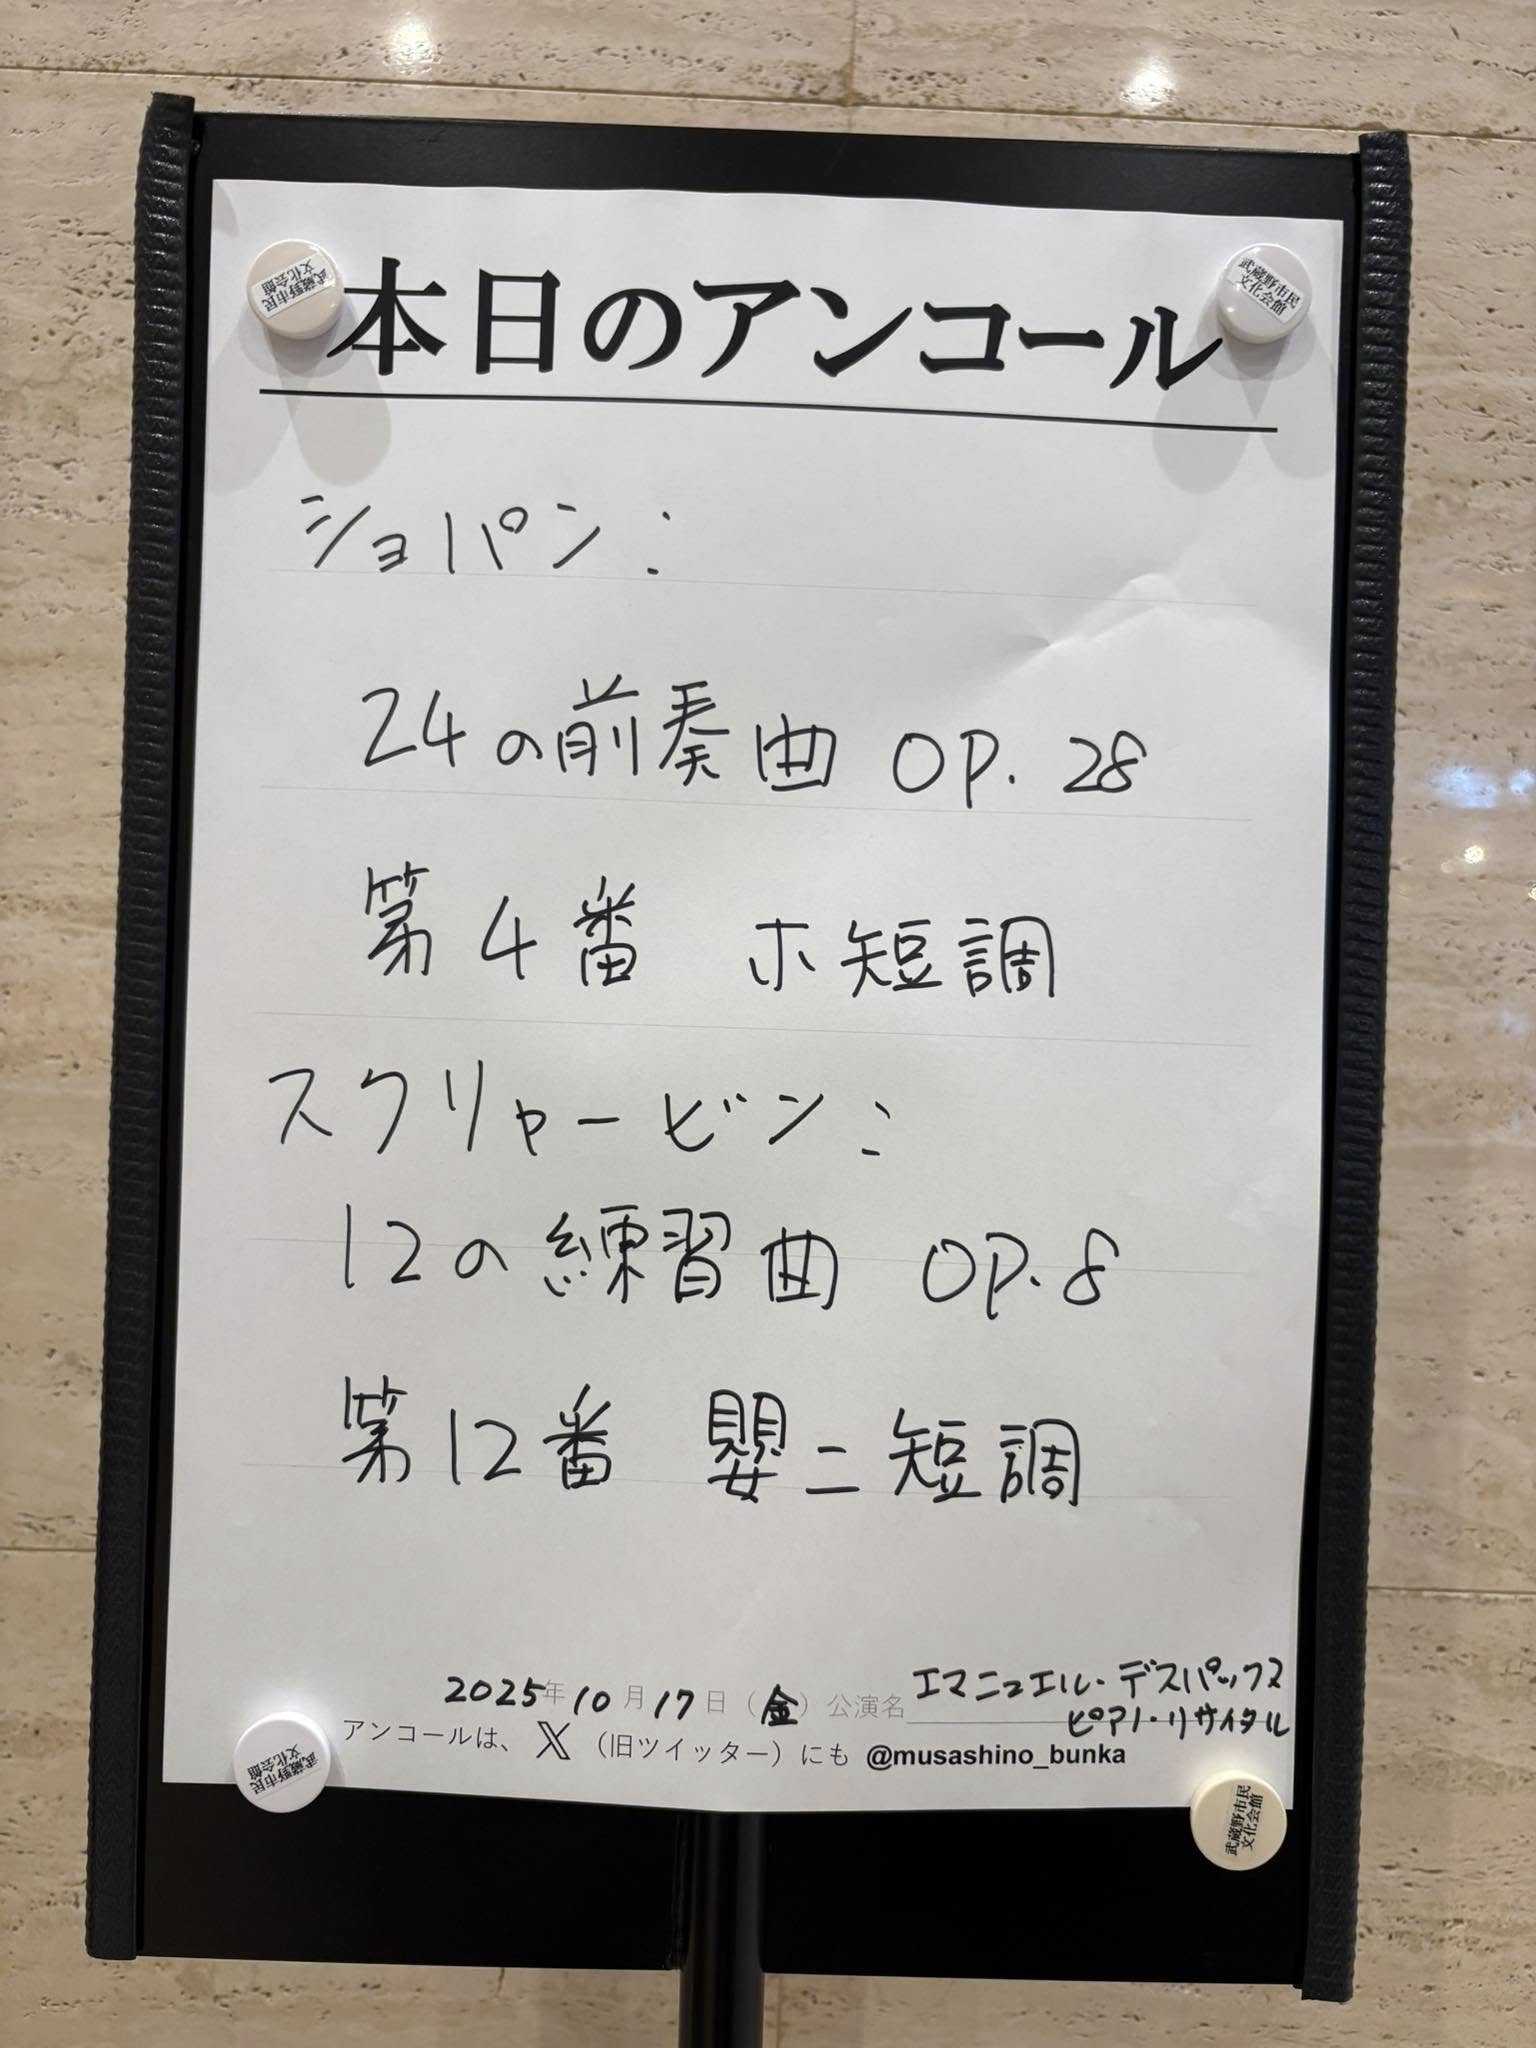 本日のアンコール
ショパン:
24の前奏曲 OP. 28
第4番 ホ短調
スクリャービン:
12の練習曲 OP. 8
第12番 嬰ニ短調
2025年10月17日（金）公演名 エマニュエル・デスパックス
ピアノ・リサイタル
アンコールは、 𝕏 （旧ツイッター）にも @musashino_bunka
武蔵野市民
文化会館
武蔵野市民
文化会館
武蔵野市民
文化会館
武蔵野市民
文化会館